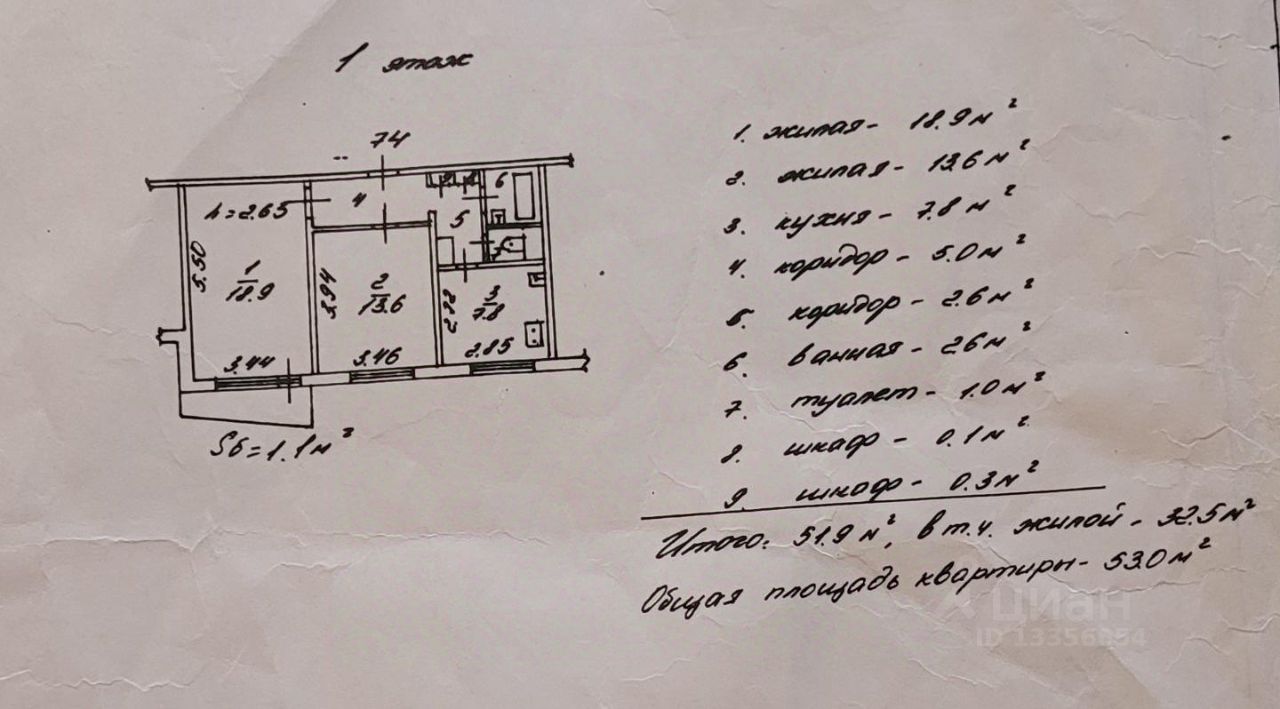 1 этаж
74
h=2.65
4
6
5
5.50
1
18.9
3.94
2
13.6
2.82
3
7.8
3.44
3.46
2.85
Sб=1.1м²
1. жилая- 18.9м²
2. жилая- 13.6м²
3. кухня- 7.8м²
4. коридор- 5.0м²
5. коридор- 2.6м²
6. ванная- 2.6м²
7. туалет- 1.0м²
8. шкаф- 0.1м²
9. шкаф- 0.3м²
Итого: 51.9м², в т.ч. жилой- 32.5м²
Общая площадь квартиры- 53.0м²
циан